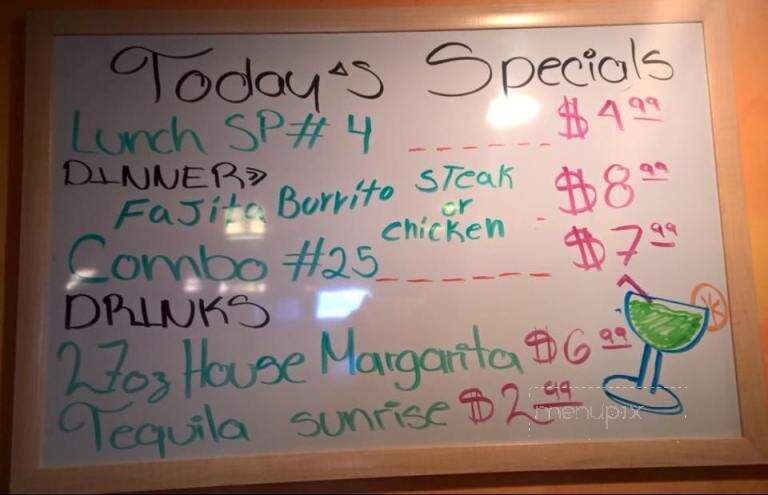 Today's Specials
Lunch SP# 4 ------ $4.99
DINNER»
Fajita Burrito Steak or chicken - $8.99
Combo #25 ------- $7.99
DRINKS
27oz House Margarita $6.99
Tequila sunrise $2.99
menupix